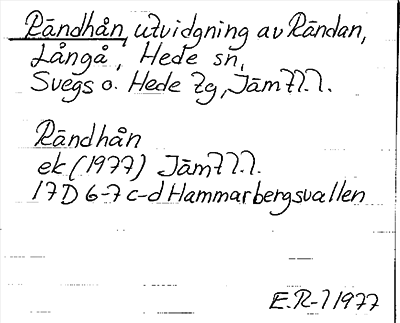 Råndhån, utvidgning av Råndan,
Långå, Hede sn,
Svegs o. Hede tg, Jämtl. l.
Råndhån
ek (1977) Jämtl. l.
17D 6-7 c-d Hammarbergsvallen
E.R-l 1977